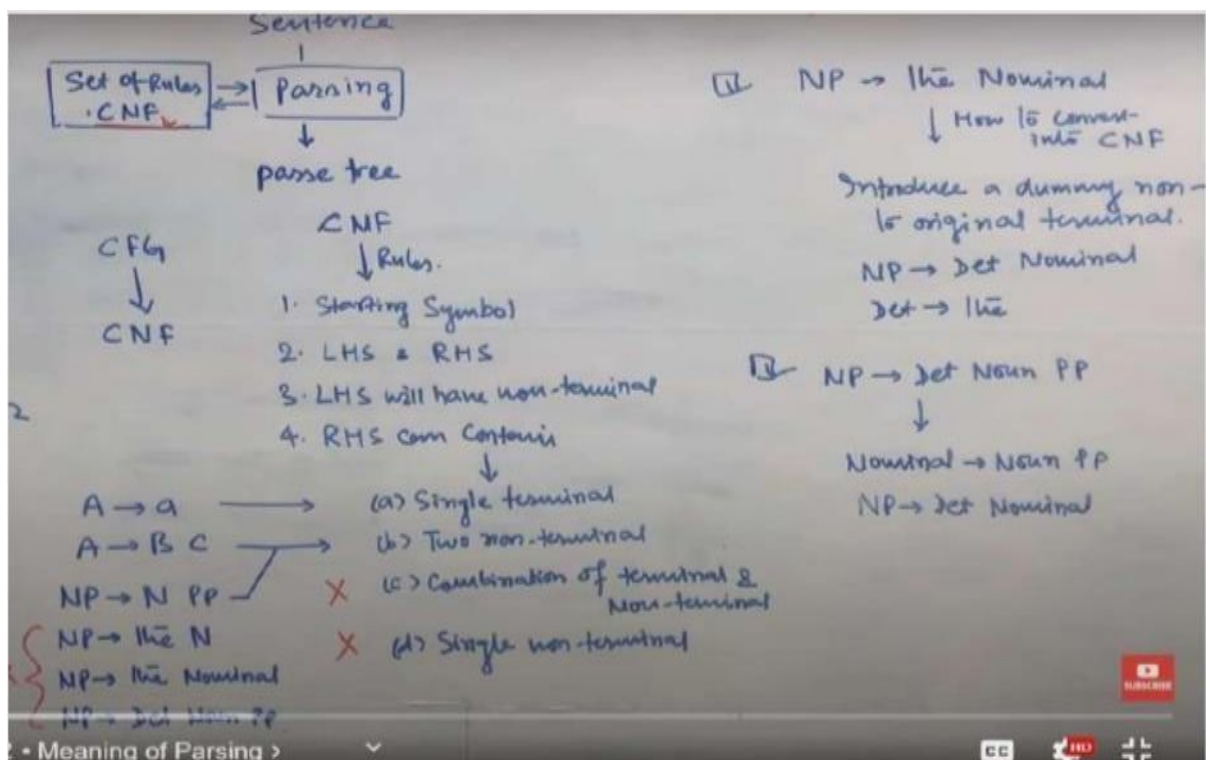 Sentence
Set of Rules
.CNF
Parsing
passe tree
CFG
CNF
CNF
Rules.
1. Starting Symbol
2. LHS & RHS
3. LHS will have non-terminal
4. RHS can Contain
A → a → (a) Single terminal
A → B C → (b) Two non-terminal
NP → N PP
X (c) Combination of terminal &
Non-terminal
NP → the N
X (d) Single non-terminal
NP → the Nominal
NP → Det Noun PP
2
NP → the Nominal
How to convert
into CNF
Introduce a dummy non-
to original terminal.
NP → Det Nominal
Det → the
NP → Det Noun PP
Nominal → Noun PP
NP → Det Nominal
SUBSCRIBE
• Meaning of Parsing >
CC
HD